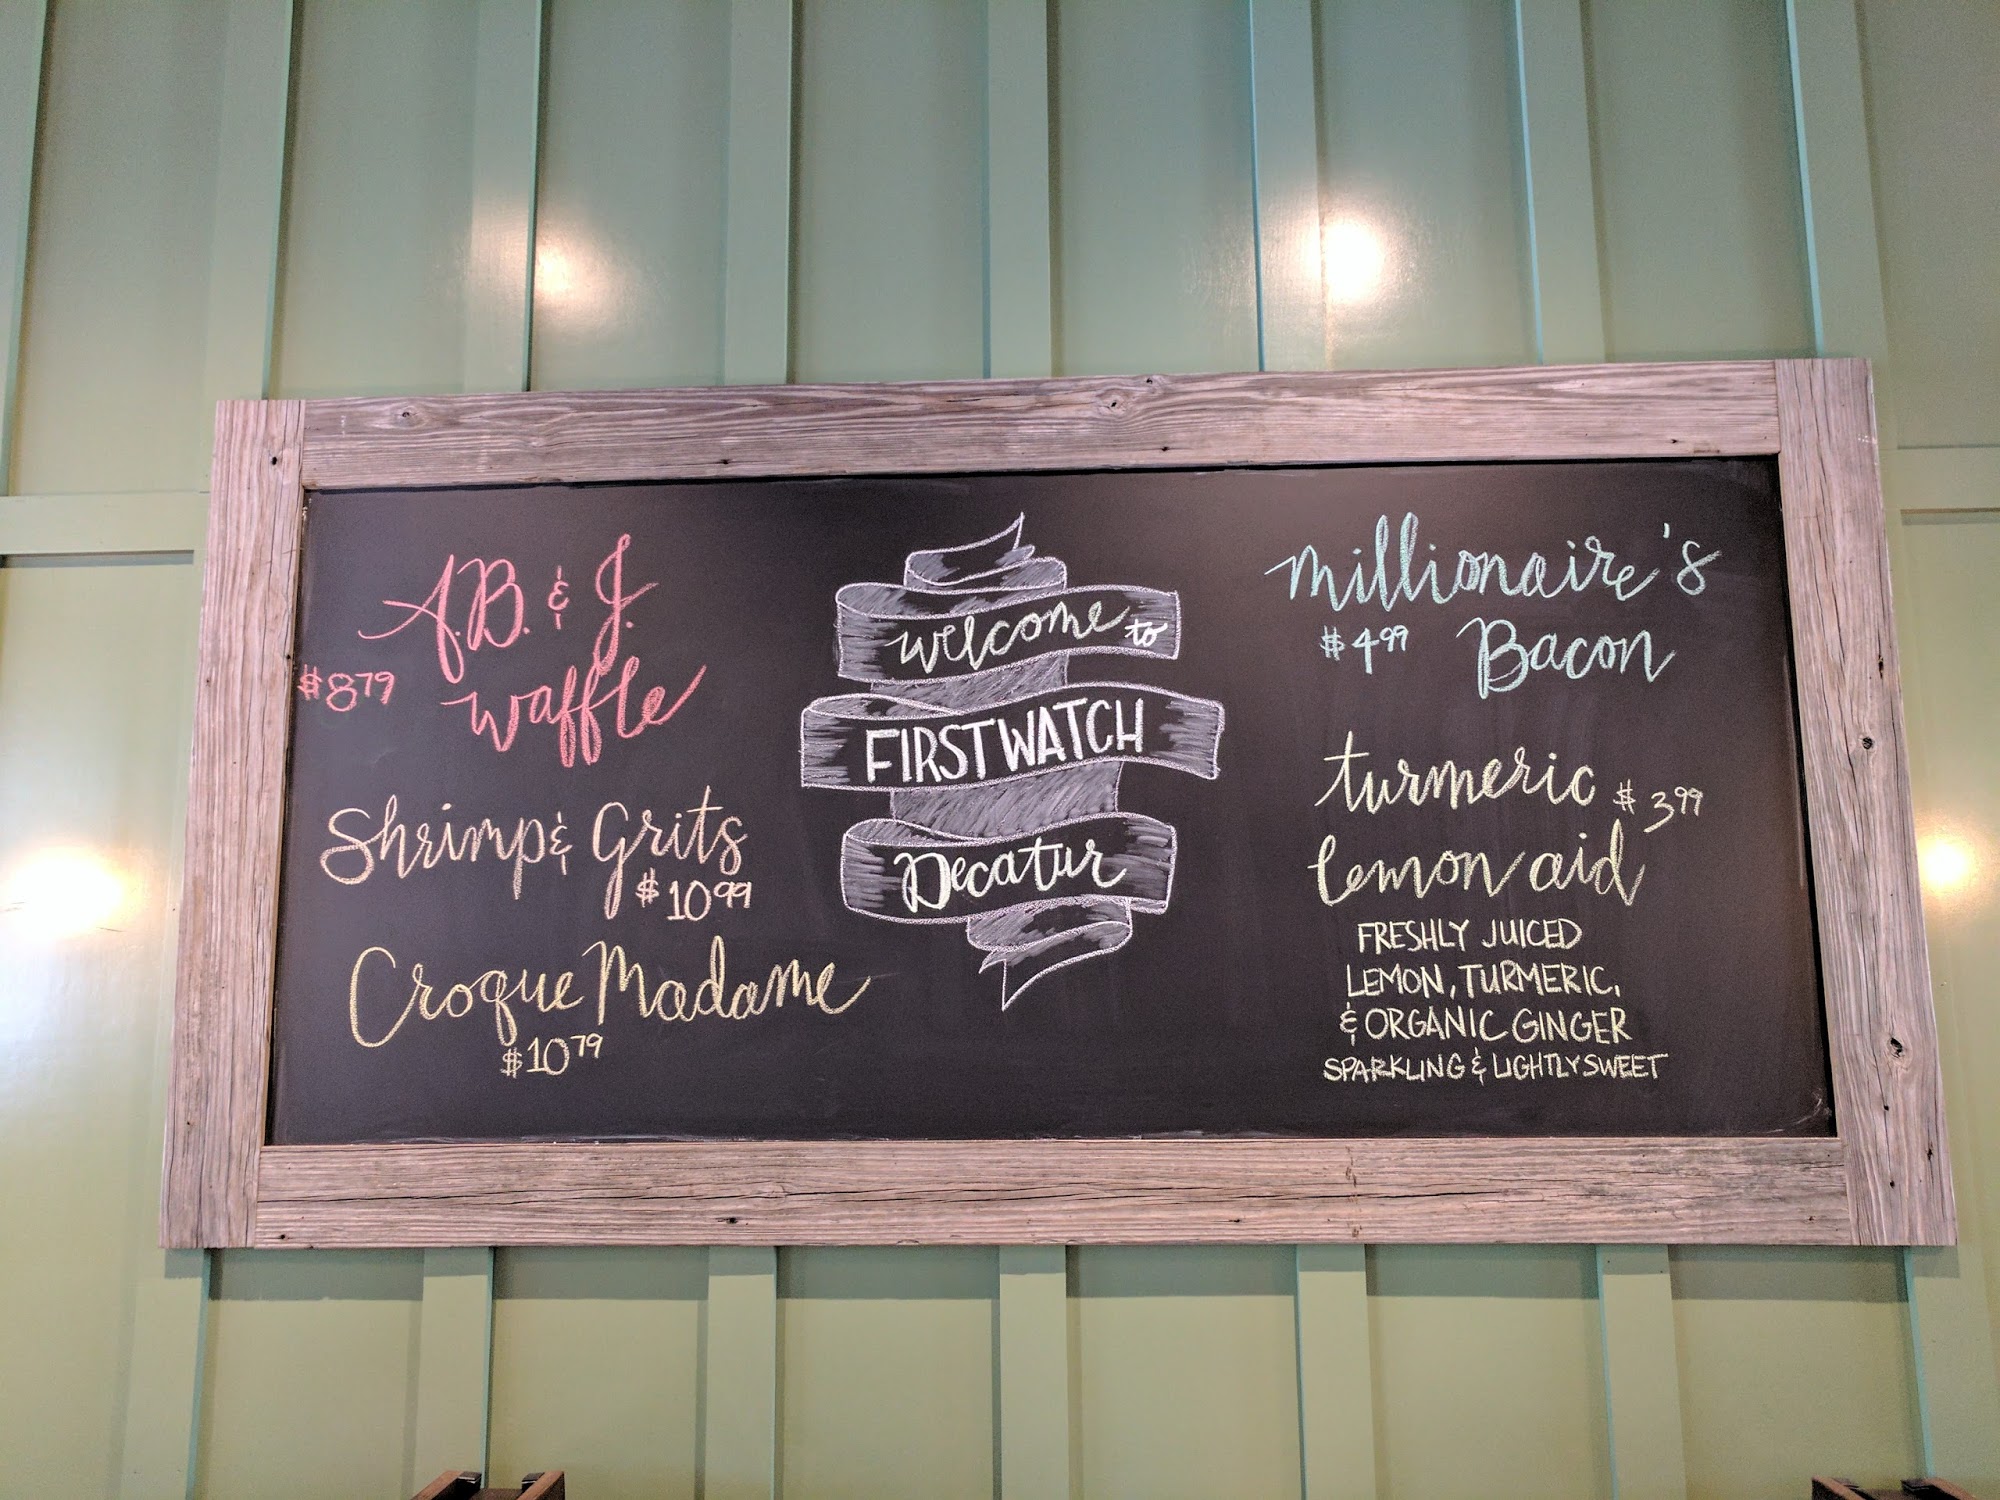 A.B. & J.
$8.79 waffle
Shrimp & Grits
$10.99
Croque Madame
$10.79
welcome to
FIRST WATCH
Decatur
millionaire's
$4.99 Bacon
turmeric $3.99
lemon aid
FRESHLY JUICED
LEMON, TURMERIC,
& ORGANIC GINGER
SPARKLING & LIGHTLY SWEET